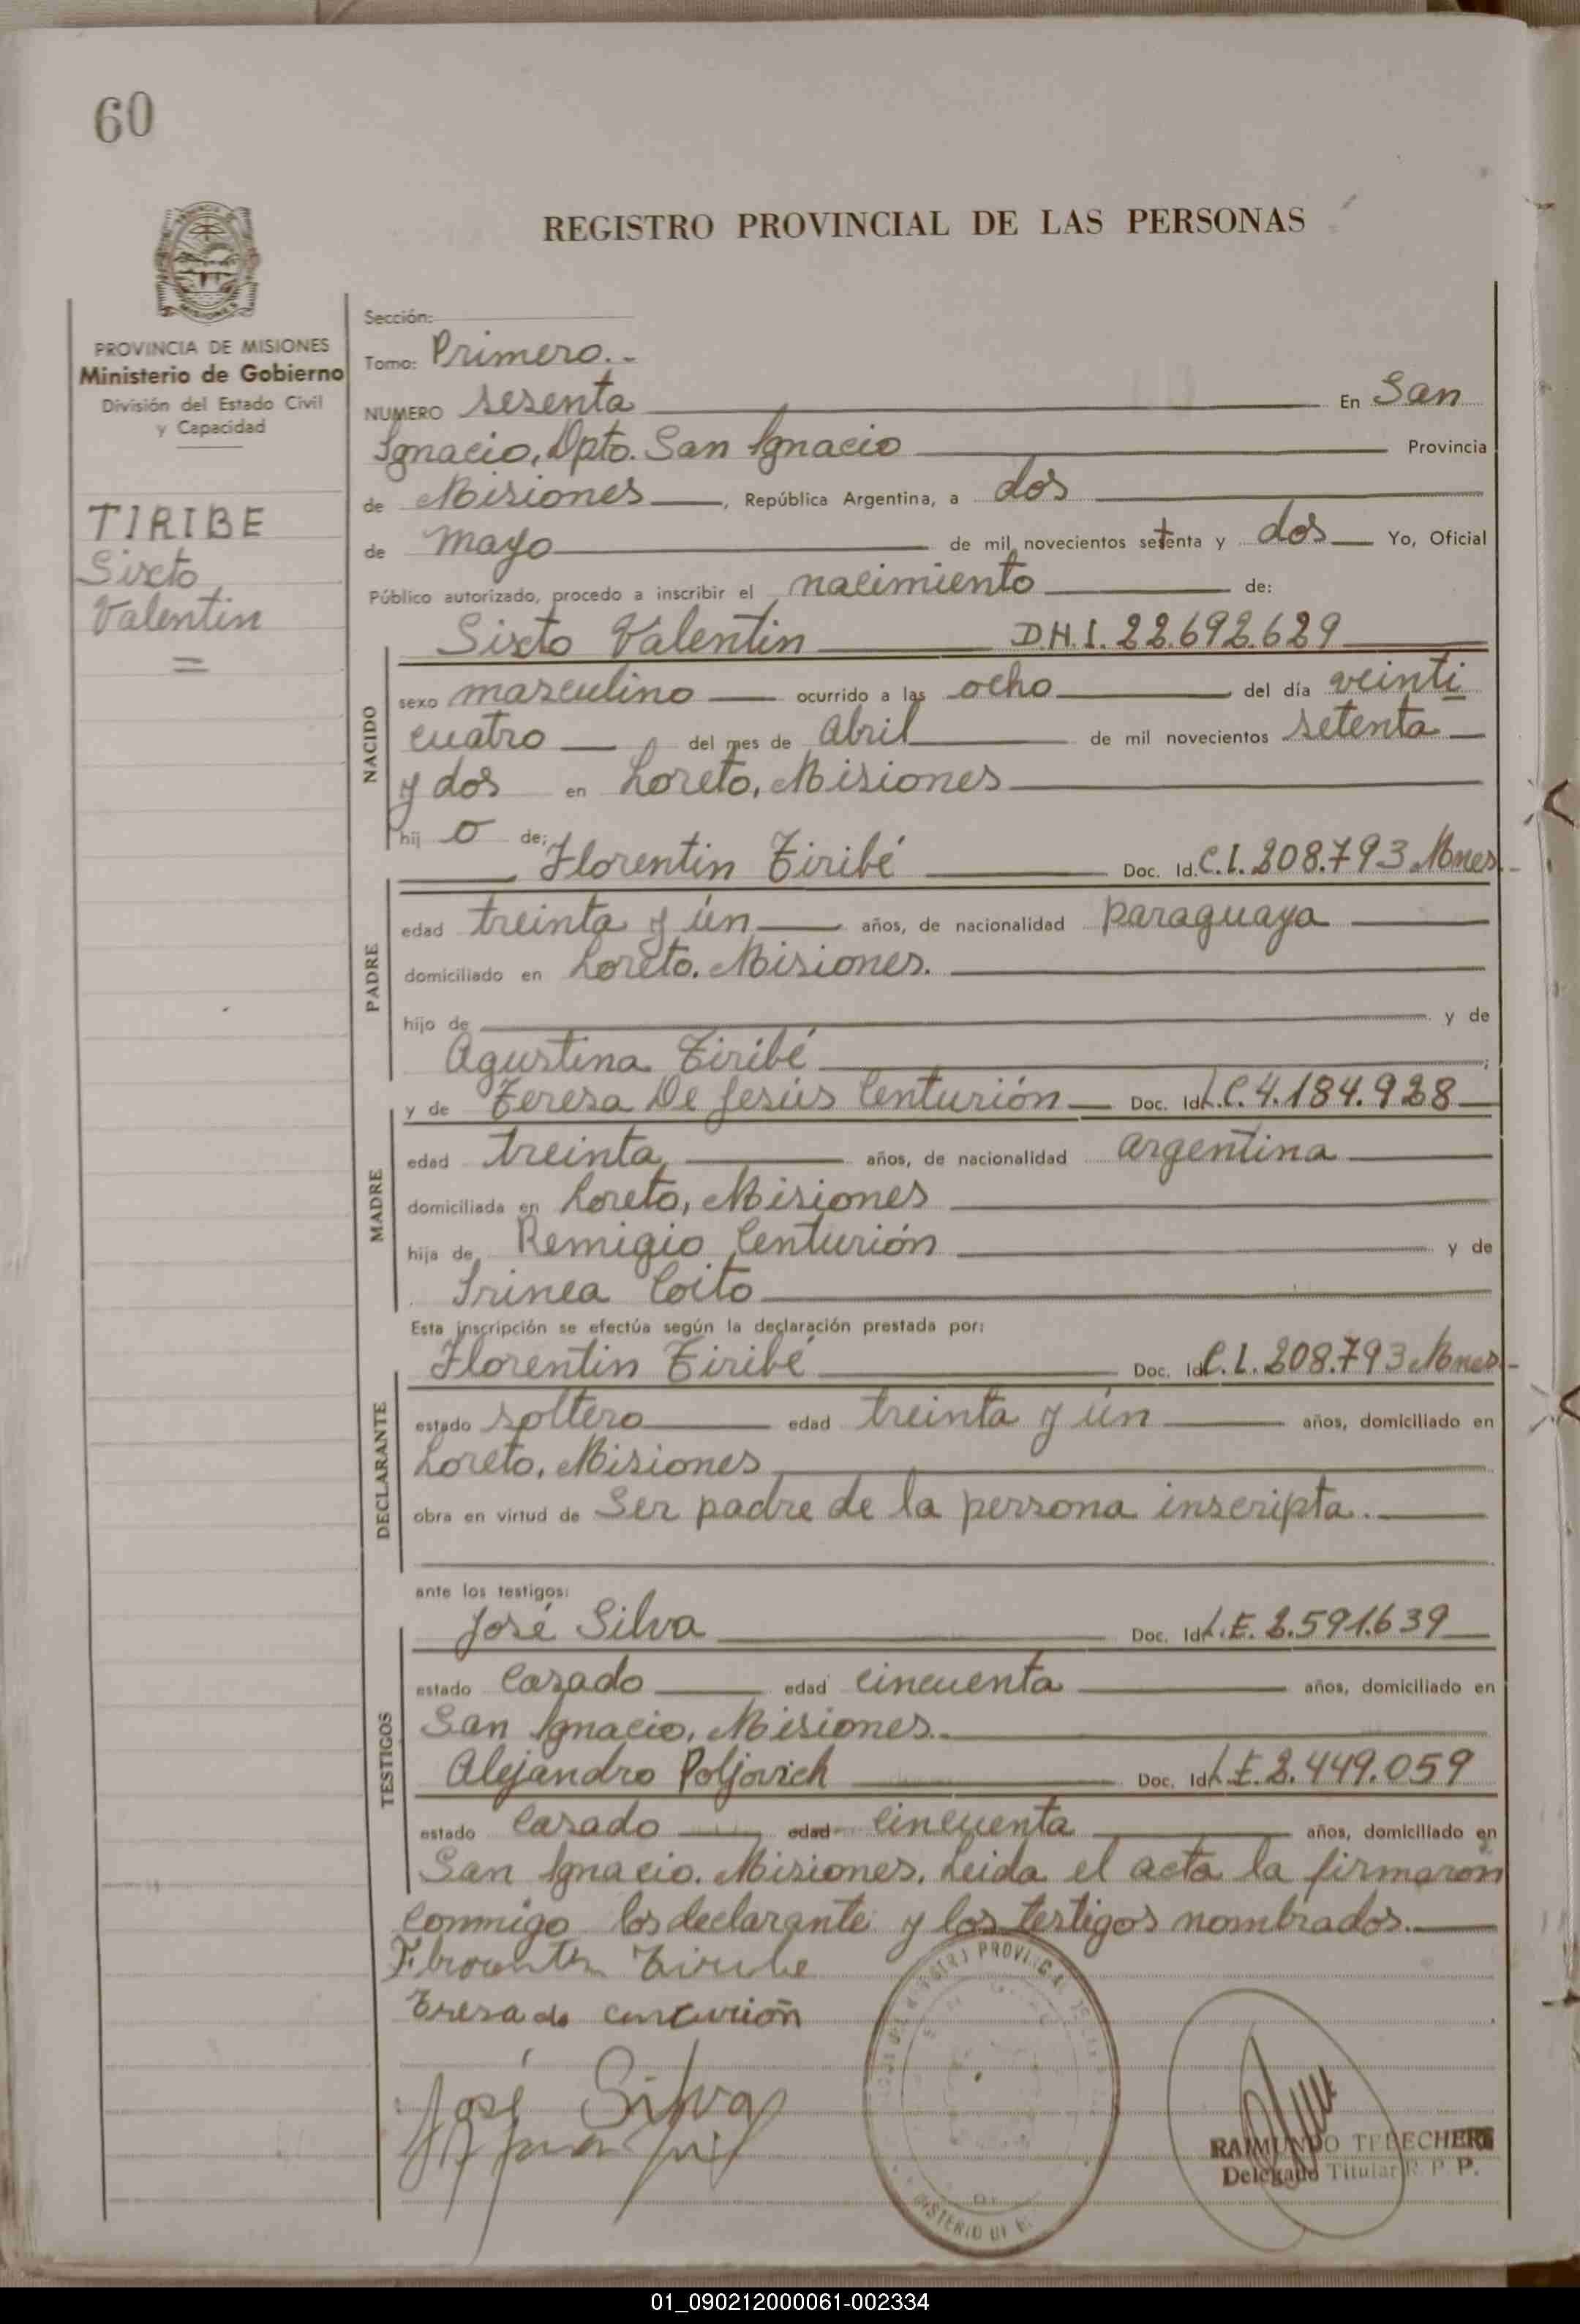 60
REGISTRO PROVINCIAL DE LAS PERSONAS
PROVINCIA DE MISIONES
Ministerio de Gobierno
División del Estado Civil
y Capacidad
TIRIBE
Sixto
Valentin
=
Sección:
Tomo: Primero.-
NUMERO sesenta En San
Ignacio, Dpto. San Ignacio Provincia
de Misiones, República Argentina, a dos
de mayo de mil novecientos setenta y dos Yo, Oficial
Público autorizado, procedo a inscribir el nacimiento de:
Sixto Valentin D.N.I. 22.692.629
NACIDO
sexo masculino ocurrido a las ocho del día veinti
cuatro del mes de Abril de mil novecientos setenta
y dos en Loreto, Misiones
hij o de:
Florentin Tiribé Doc. Id. C.I. 208.793 Mnes.
PADRE
edad treinta y ún años, de nacionalidad paraguaya
domiciliado en Loreto. Misiones.
hijo de y de
Agustina Tiribé;
y de Teresa De Jesús Centurión Doc. Id. L.C. 4.184.928
MADRE
edad treinta años, de nacionalidad argentina
domiciliada en Loreto, Misiones
hija de Remigio Centurión y de
Irinea Coito
Esta inscripción se efectúa según la declaración prestada por:
Florentin Tiribé Doc. Id. C.I. 208.793 Mnes.
DECLARANTE
estado soltero edad treinta y ún años, domiciliado en
Loreto, Misiones
obra en virtud de Ser padre de la persona inscripta.
ante los testigos:
José Silva Doc. Id. L.E. 2.591.639
TESTIGOS
estado Casado edad cincuenta años, domiciliado en
San Ignacio, Misiones.
Alejandro Poljovich Doc. Id. L.E. 2.449.059
estado Casado edad cincuenta años, domiciliado en
San Ignacio. Misiones. Leida el acta la firmaron
conmigo los declarante y los testigos nombrados.
Tiribe
Teresa de centurión
José Silva
RAIMUNDO TELECHERE
Delegado Titular R. P. P.
01_090212000061-002334